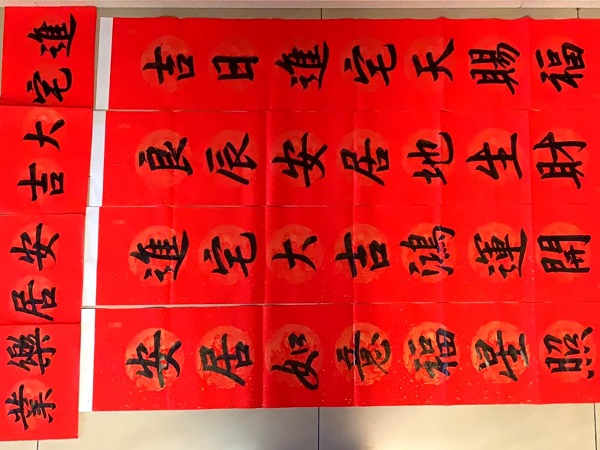 吉日進宅天賜福
良辰安居地生財
進宅大吉鴻運開
安居如意福星照
進宅大吉
安居樂業